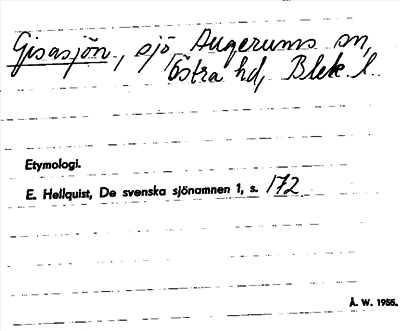 Gisasjön, sjö, Augerums sn,
Östra hd, Blek. l.
Etymologi.
E. Hellquist, De svenska sjönamnen 1, s. 172
Å. W. 1955.